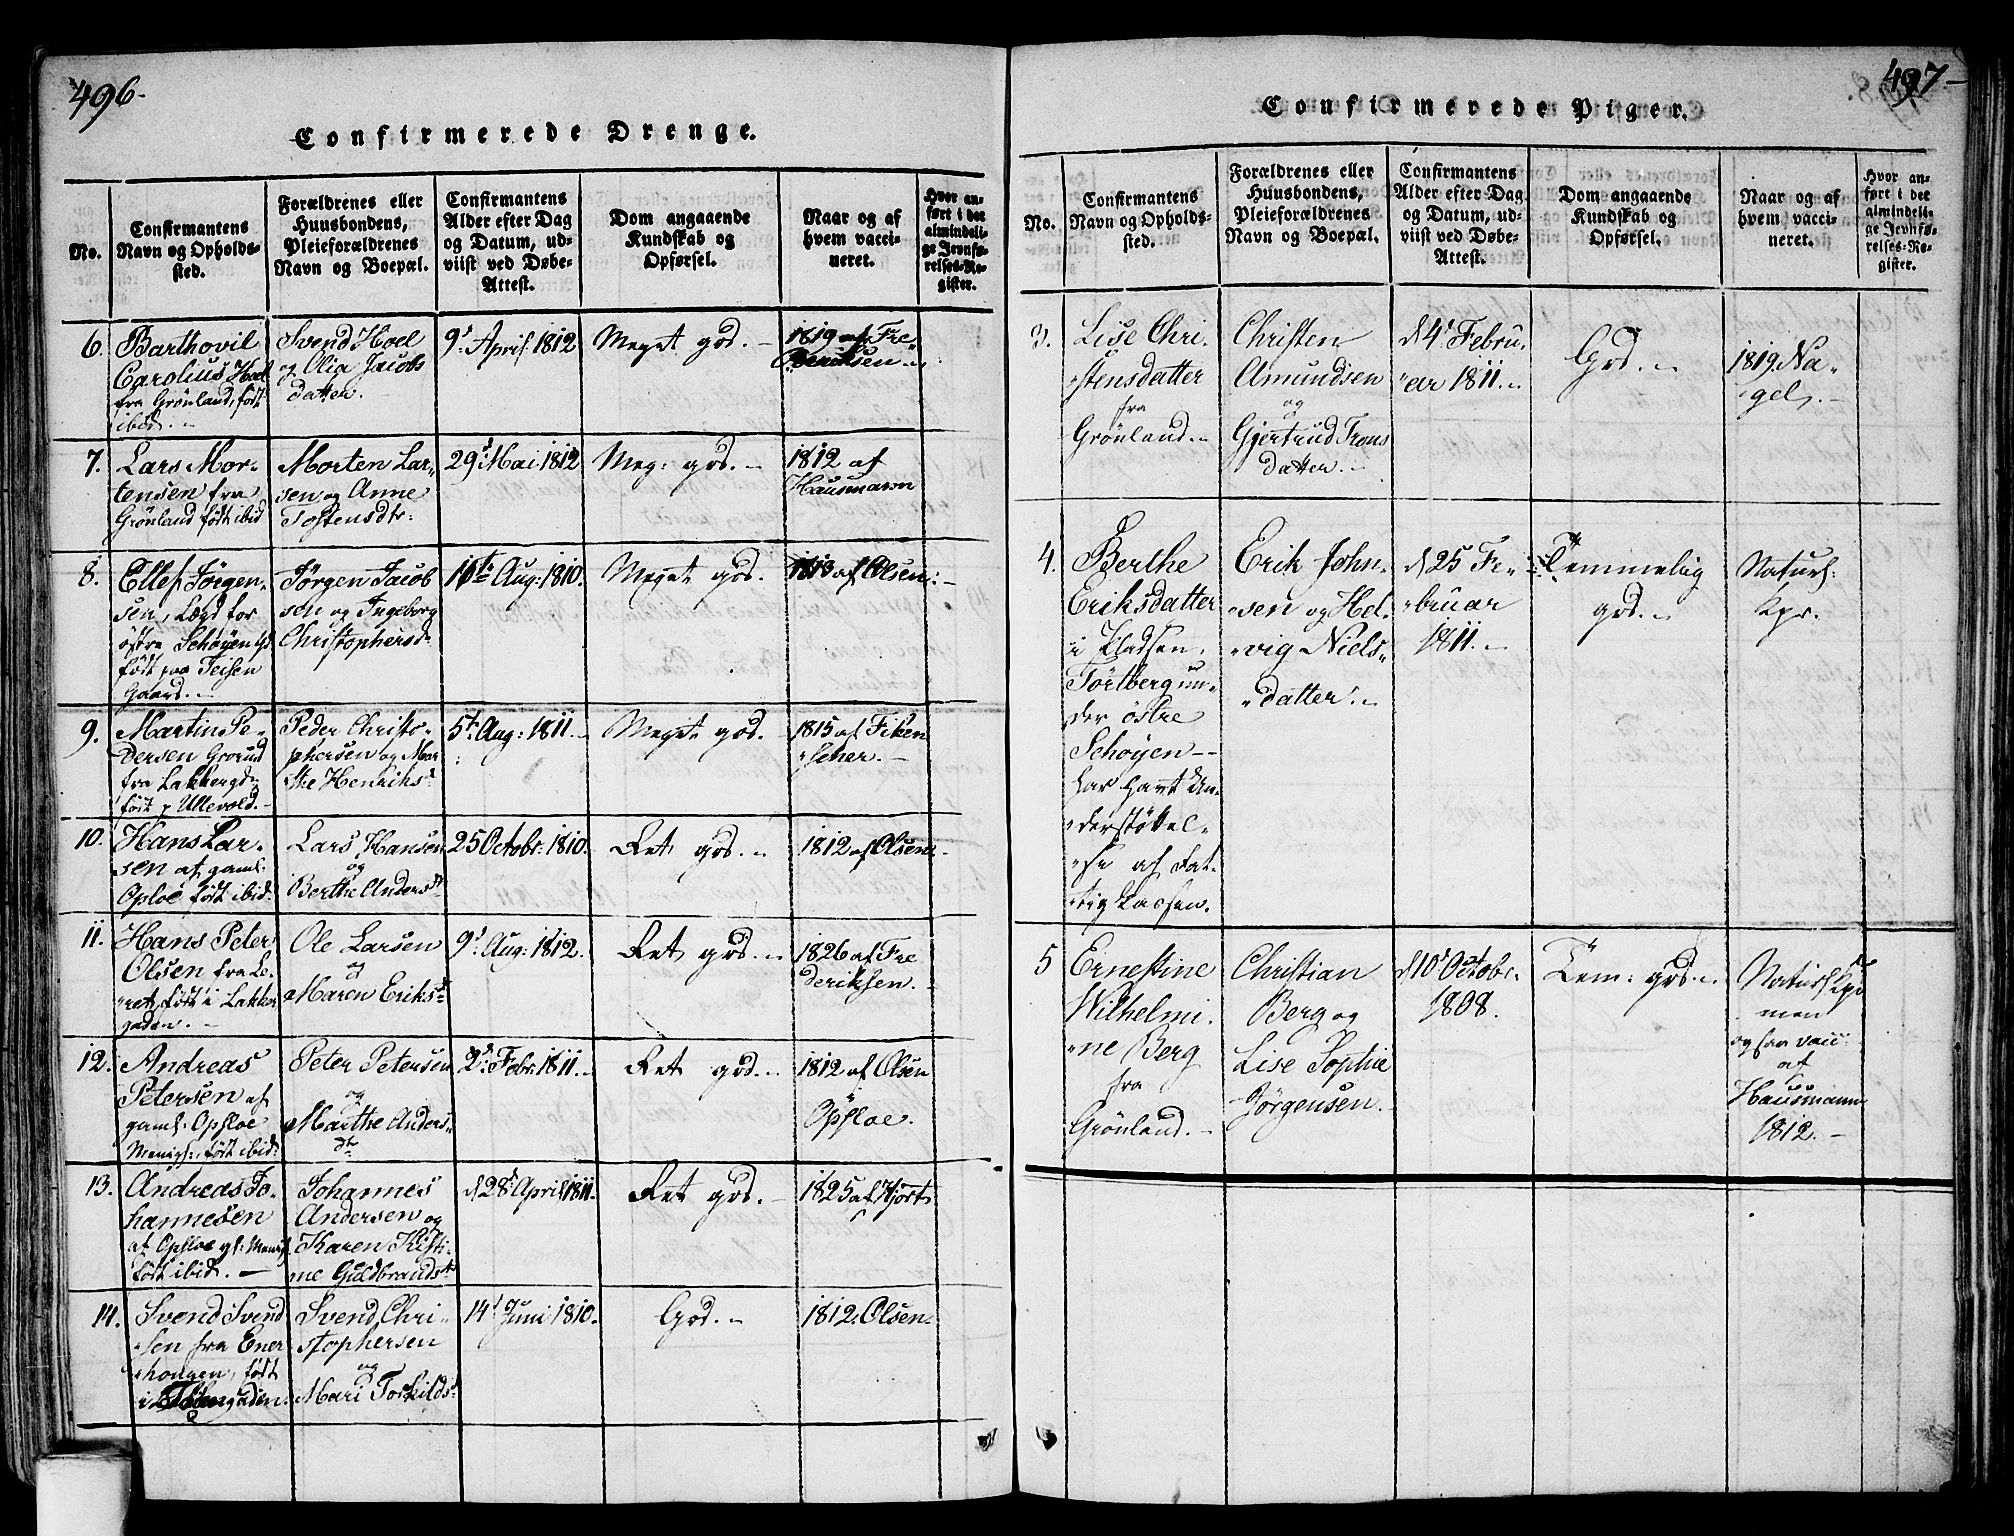 496.
Confirmerede Drenge.
No.
Confirmantens
Navn og Opholds-
sted.
Forældrenes eller
Huusbondens,
Pleieforældrenes
Navn og Boepæl.
Confirmantens
Alder efter Dag
og Datum, ud-
viist ved Døbe-
Attest.
Dom angaaende
Kundskab og
Opførsel.
Naar og af
hvem vacci-
neret.
Hvor an-
ført i det
almindeli-
ge Jevnfø-
relses-Re-
gister.
6.
Barthovil
Carolius Hoel
fra Grönland, födt
ibid. -
Svend Hoel
og Olia Jacobs
datter.
9d April 1812
Meget god. -
1819 af Fre-
deriksen. -
7.
Lars Mor-
tensen fra
Grönland födt ibid
Morten Lar-
sen og Anne
Tostensdtr:
29d Mai 1812
Meg: god. -
1812 af
Hausmann
8.
Ellef Jörgen-
sen, Lægd for
östre Schöyen
födt paa Teisen
Gaard. -
Jörgen Jacob
sen og Ingeborg
Christophersd
11te Aug: 1810.
Meget god.
1813 af Olsen. -
9.
Martin Pe-
dersen Grorud
fra Lakkergd
födt p Ullevold. -
Peder Christo-
phersen og Mar
the Henriksd
5t Aug: 1811. -
Meget god. -
1815 af Fiken
scher. -
10.
Hans Lar-
sen af gaml.
Opsloe födt ibid.
Lars Hansen
og
Berthe Andersdt
25 Octobr: 1810.
Ret god. -
1812 af Olsen. -
11.
Hans Peter
Olsen fra Le-
ret, födt i Lakker
gaden. -
Ole Larsen
og
Maren Eriksd
9d Aug: 1812.
Ret god. -
1826 af Fre
deriksen. -
12.
Andreas
Petersen af
gaml. Opsloe
Menigh:, födt ibid.
Peter Petersen
og
Marthe Anders-
dtr
2d Febr: 1811. -
Ret god. -
1812 af Olsen
Opsloe.
13.
Andreas Jo-
hannesen
af Opsloe gl: Menigh
födt ibid. -
Johannes
Andersen og
Karen Kisti-
ne Guldbrandsdt
d 28d April 1811.
Ret god. -
1825 af Hjort
14.
Svend Svend
sen fra Ener
hougen, födt
i gaden.
Svend Chri-
stophersen
og
Mari Torkildsd
14d Juni 1810.
God. -
1812. Olsen.
497.
Confirmerede Piger.
No.
Confirmantens
Navn og Opholds-
sted.
Forældrenes eller
Huusbondens,
Pleieforældrenes
Navn og Boepæl.
Confirmantens
Alder efter Dag
og Datum, ud-
viist ved Døbe-
Attest.
Dom angaaende
Kundskab og
Opførsel.
Naar og af
hvem vacci-
neret.
Hvor an-
ført i det
almindeli-
ge Jevnfø-
relses-Re-
gister.
3.
Lise Chri-
stensdatter
fra
Grönland. -
Christen
Amundsen
og
Gjertrud Trons
datter. -
d 4d Febru-
ar 1811. -
God. -
1819. Na-
gel. -
4.
Berthe
Eriksdatter
i Pladsen
Törtberg un-
der östre
Schöyen -
har havt Un-
derstöttel-
se af Fat-
tig Kassen.
Erik John-
sen og Hel-
vig Niels-
datter. -
d 25 Fe-
bruar
1811. -
Temmelig
god. -
Naturl:
Kpr.
5
Ernestine
Wilhelmi-
ne Berg
fra
Grönland. -
Christian
Berg og
Lise Sophie
Jörgensen. -
d 10d Octobr.
1808.
Tem: god. -
Naturl Kpr
men
ogsaa vacc:
af
Hausmann
1812. -